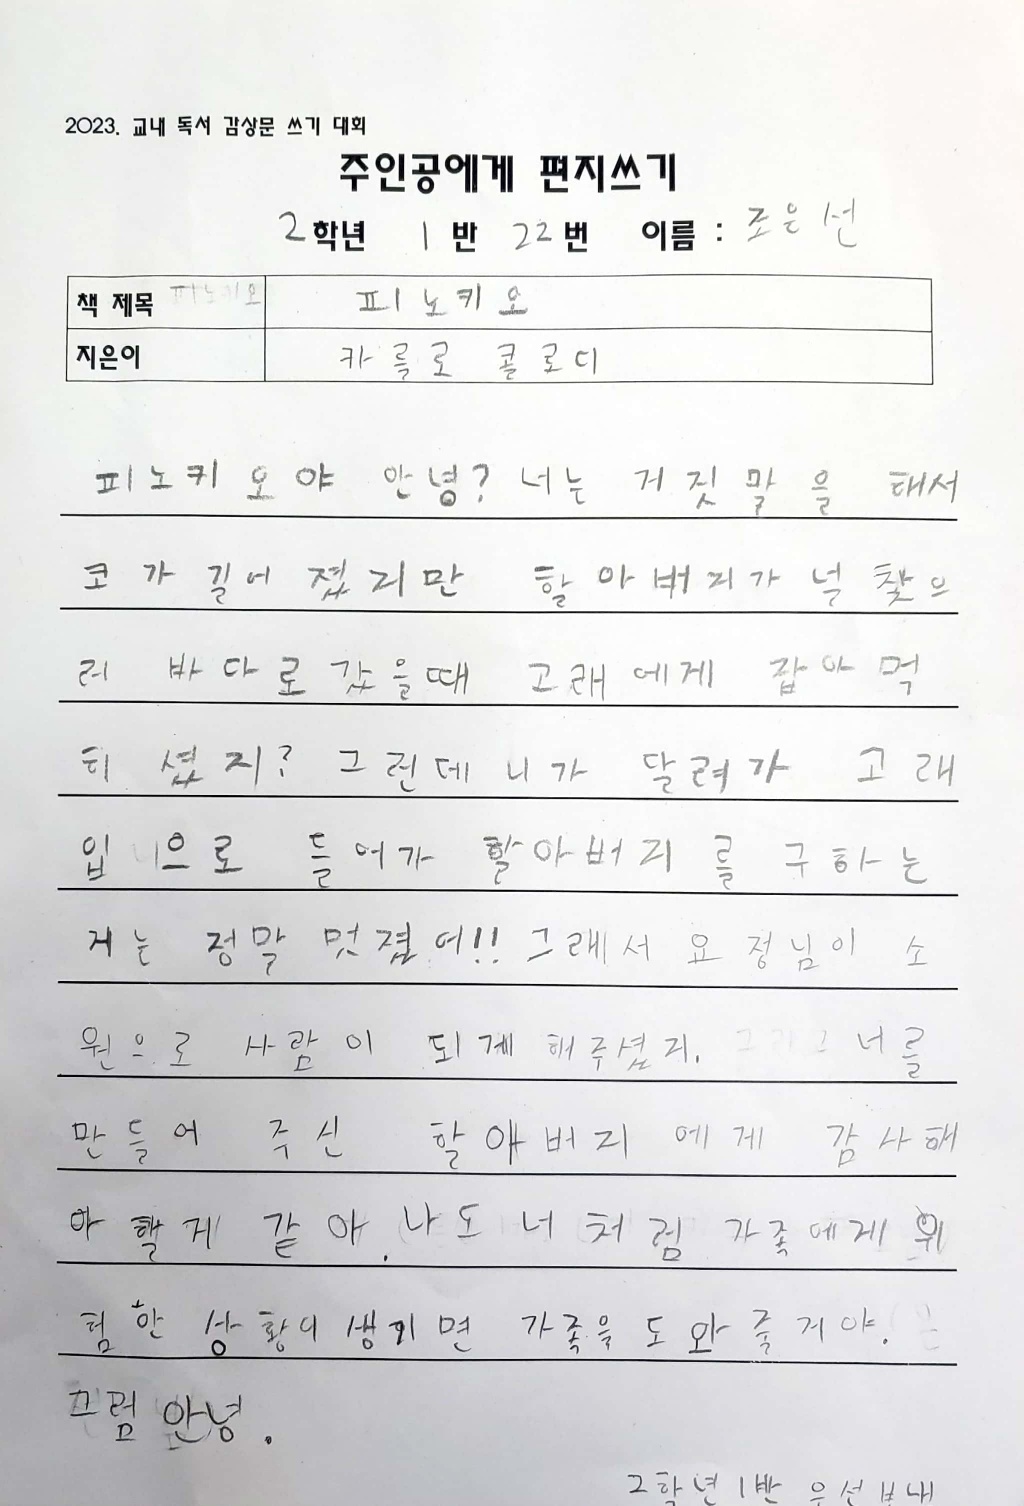 2023. 교내 독서 감상문 쓰기 대회
주인공에게 편지쓰기
2학년 1반 22번 이름 : 조은선
책 제목 피노키오
지은이 카를로 콜로디
피노키오야 안녕? 너는 거짓말을 해서
코가 길어졌지만 할아버지가 넉 찾으
러 바다로 갔을때 고래에게 잡아먹
히셨지? 그런데 니가 달려가 고래
입으로 들어가 할아버지를 구하는
게는 정막 멋졌어!! 그래서 요정님이 소
원으로 사람이 되게 해주셨지. 너를
만들어 주신 할아버지에게 감사해
야 할게 같아. 나도 너처럼 가족에게 위
험한 상황이 생기면 가족을 도와줄거야.
그럼 안녕.
2학년 1반